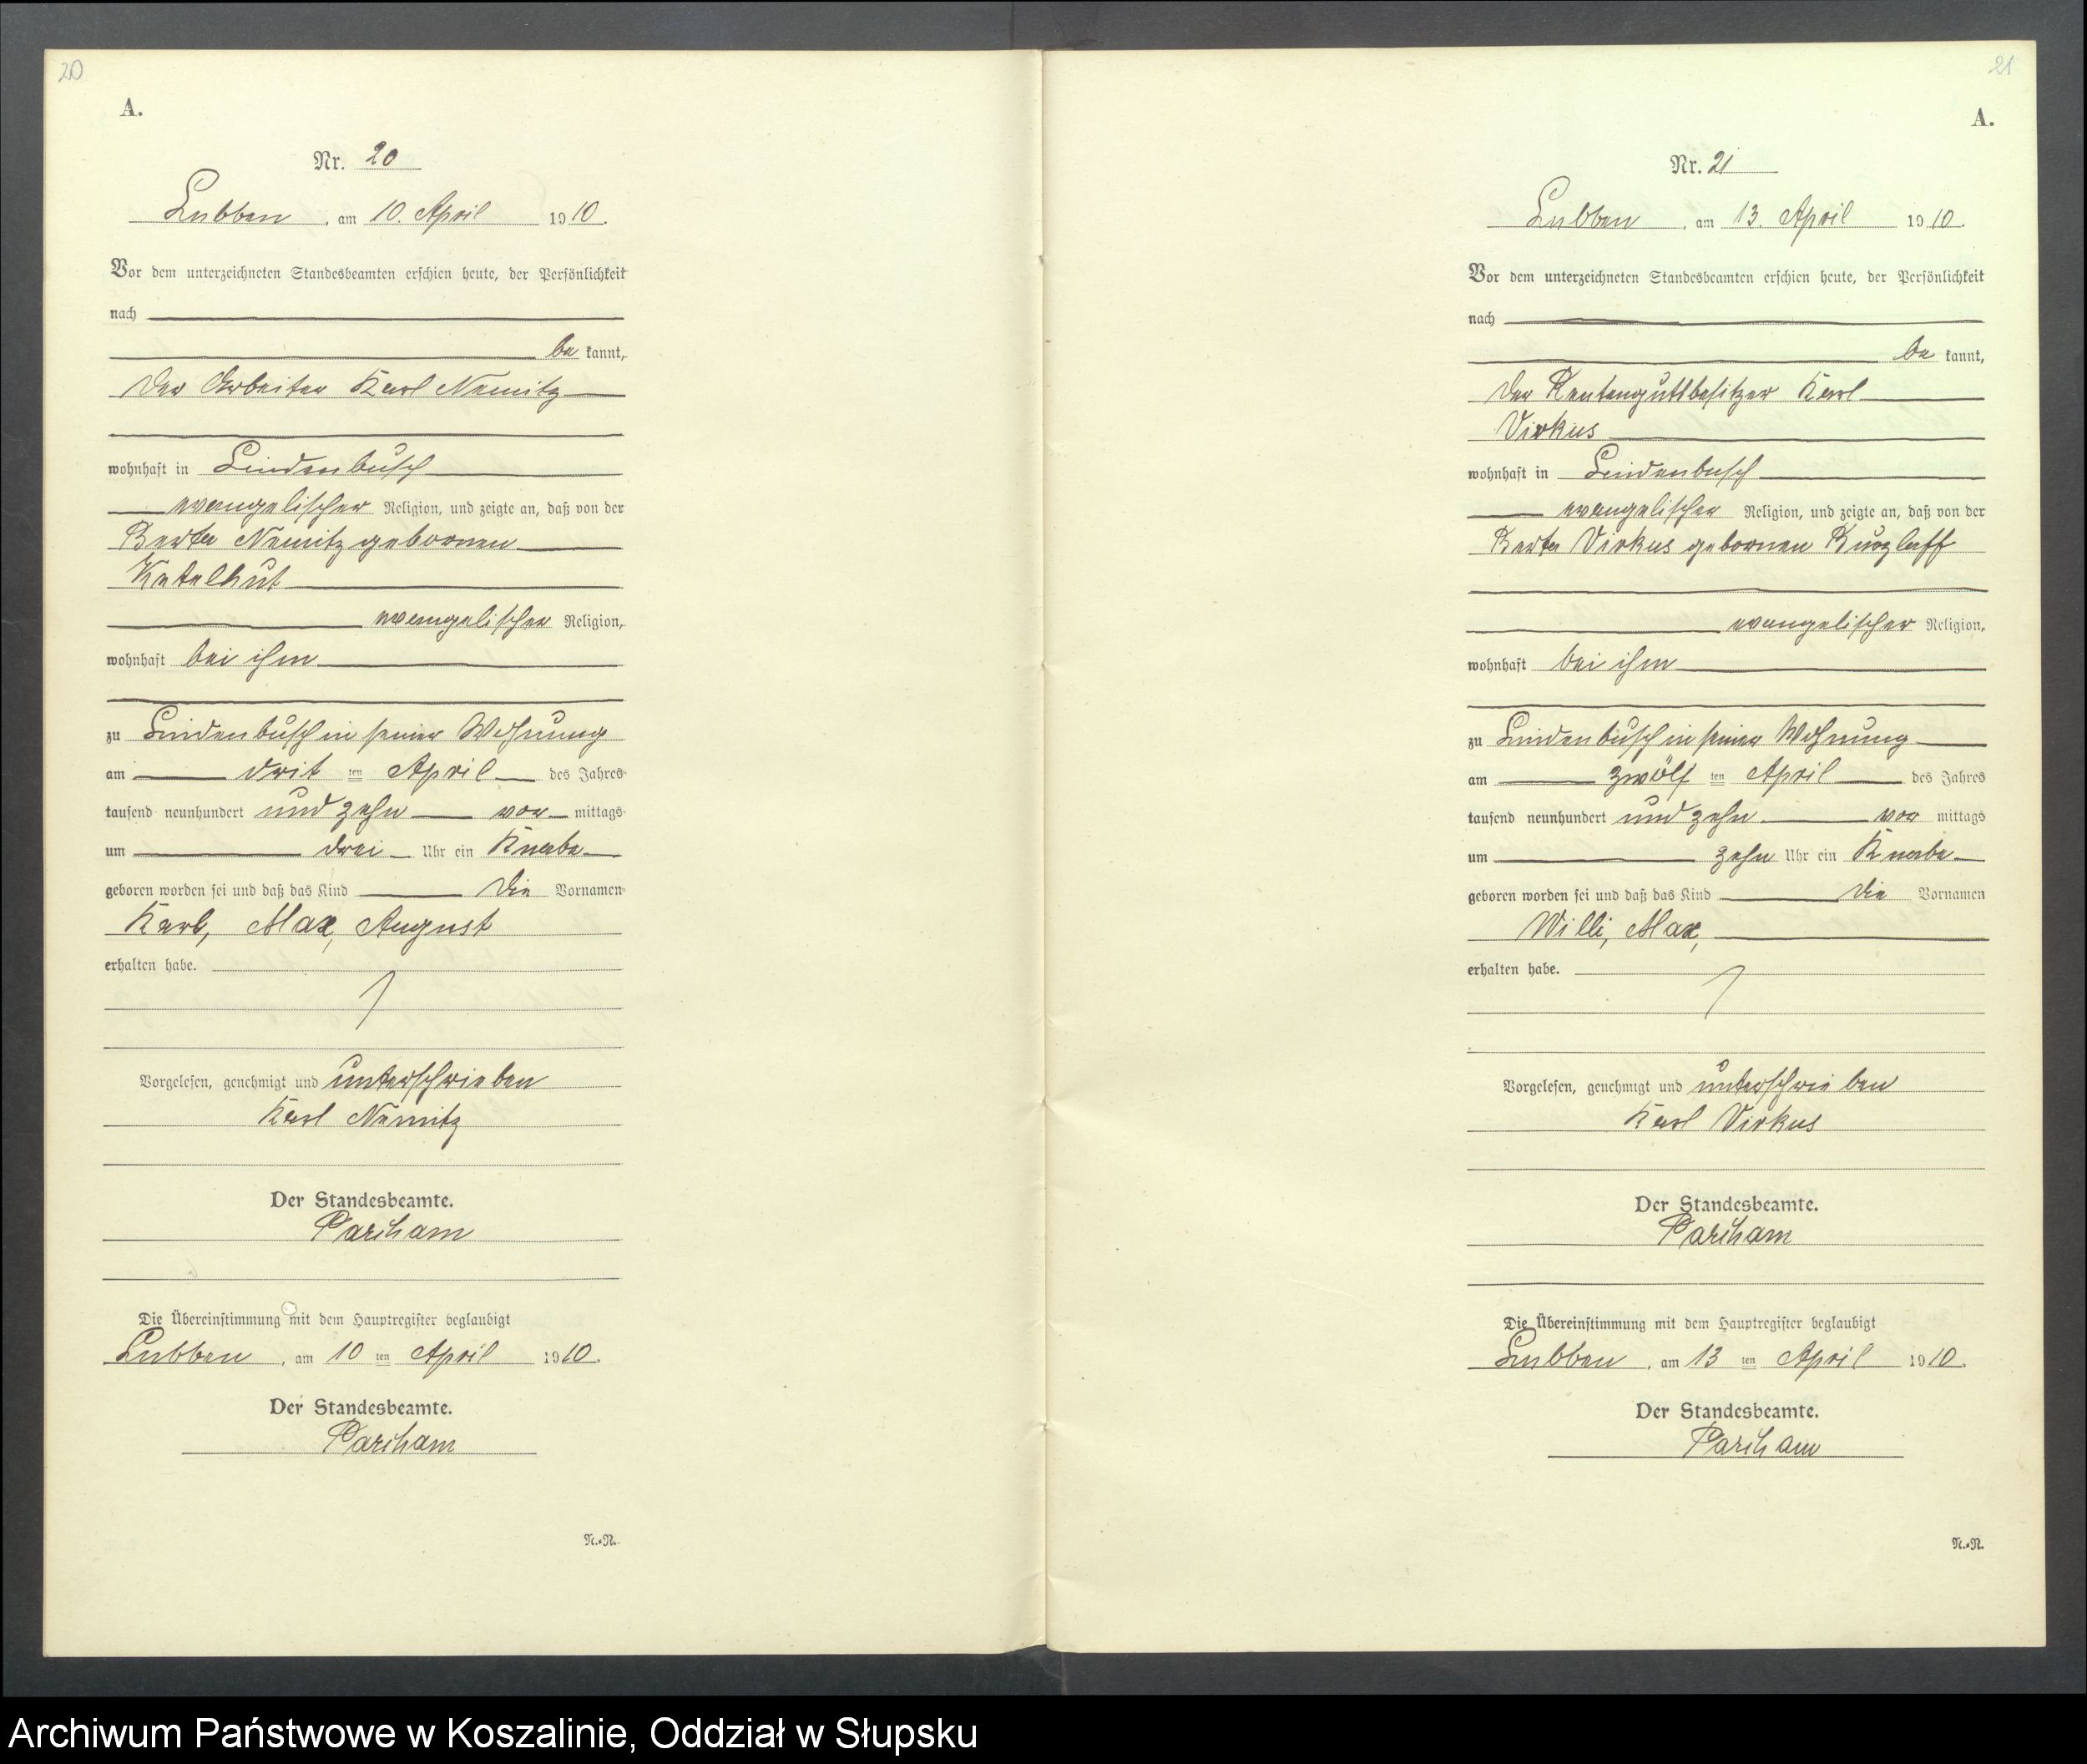 20
A.
Nr. 20
Lubben, am 10. April 1910.
Vor dem unterzeichneten Standesbeamten erschien heute, der Persönlichkeit
nach
be kannt,
der Arbeiter Karl Nemitz
wohnhaft in Lindenbusch
evangelischer Religion, und zeigte an, daß von der
Berta Nemitz gebornen
Ketelhut
evangelischer Religion,
wohnhaft bei ihm
zu Lindenbusch in seiner Wohnung
am drit ten April des Jahres
tausend neunhundert und zehn vor mittags
um drei Uhr ein Knabe
geboren worden sei und daß das Kind die Vornamen
Karl, Max, August
erhalten habe.
Vorgelesen, genehmigt und unterschrieben
Karl Nemitz
Der Standesbeamte.
Parcham
Die Übereinstimmung mit dem Hauptregister beglaubigt
Lubben, am 10 ten April 1910.
Der Standesbeamte.
Parcham
N.=R.
21
A.
Nr. 21
Lubben, am 13. April 1910.
Vor dem unterzeichneten Standesbeamten erschien heute, der Persönlichkeit
nach
be kannt,
der Rentengutsbesitzer Karl
Virkus
wohnhaft in Lindenbusch
evangelischer Religion, und zeigte an, daß von der
Berta Virkus gebornen Kuzlaff
evangelischer Religion,
wohnhaft bei ihm
zu Lindenbusch in seiner Wohnung
am zwölf ten April des Jahres
tausend neunhundert und zehn vor mittags
um zehn Uhr ein Knabe
geboren worden sei und daß das Kind die Vornamen
Willi, Max,
erhalten habe.
Vorgelesen, genehmigt und unterschrieben
Karl Virkus
Der Standesbeamte.
Parcham
Die Übereinstimmung mit dem Hauptregister beglaubigt
Lubben, am 13 ten April 1910.
Der Standesbeamte.
Parcham
N.=R.
Archiwum Państwowe w Koszalinie, Oddział w Słupsku